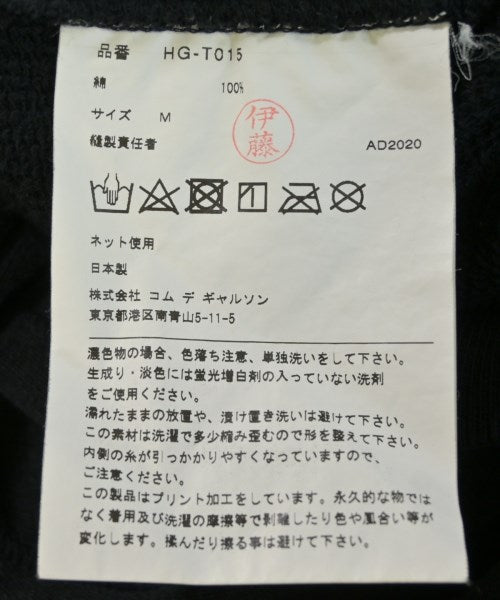 品番 HG-T015
綿 100%
サイズ M
伊藤
縫製責任者 AD2020
ネット使用
日本製
株式会社 コム デ ギャルソン
東京都港区南青山5-11-5
濃色物の場合、色落ち注意、単独洗いをして下さい。
生成り・淡色には蛍光増白剤の入っていない洗剤
をご使用ください。
濡れたままの放置や、漬け置き洗いは避けて下さい。
この素材は洗濯で多少縮み歪むので形を整えて下さい。
内側の糸が引っかかりやすくなっていますので、
ご注意ください。
この製品はプリント加工をしています。永久的な物では
なく着用及び洗濯の摩擦等で剥離したり色や風合い等が
変化します。揉んだり擦る事は避けて下さい。